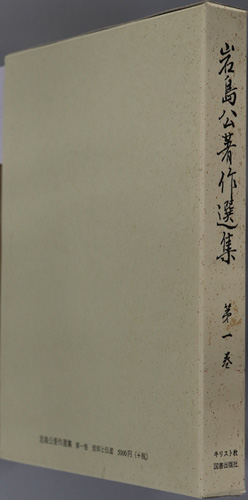 岩島公著作選集 第一巻
キリスト教
図書出版社
岩島公著作選集 第一巻 信仰と伝道 3000円(+税)